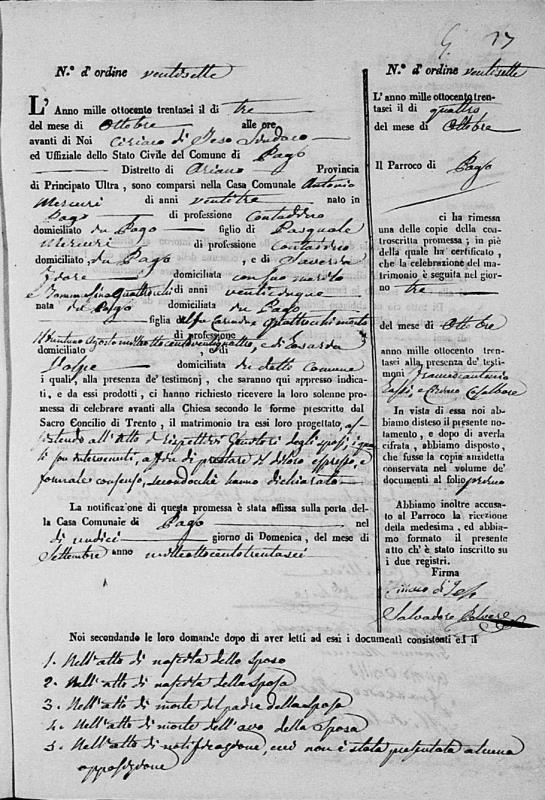 27
N.° d'ordine ventisette
L'Anno mille ottocento trentasei il dì tre
del mese di Ottobre alle ore
avanti di Noi Ciriaco di Jeso Sindaco
ed Uffiziale dello Stato Civile del Comune di Pago
Distretto di Ariano Provincia
di Principato Ultra, sono comparsi nella Casa Comunale Antonio
Mercuri di anni ventitre nato in
Pago di professione Contadino
domiciliato in Pago figlio di Pasquale
Mercuri di professione contadino
domiciliato in Pago, e di Saveria
domiciliata con suo marito
e Tommasina Quattrochi di anni venticinque
nata in Pago domiciliata in Pago
figlia del fu Quattrochi morto
di professione
domiciliato, e di
Volpe domiciliata in detto Comune
i quali, alla presenza de' testimonj, che saranno qui appresso indicati,
e da essi prodotti, ci hanno richiesto ricevere la loro solenne promessa
di celebrare avanti alla Chiesa secondo le forme prescritte dal
Sacro Concilio di Trento, il matrimonio tra essi loro progettato, as
sistendo all'Atto i rispettivi Genitori degli sposi, i quali
son intervenuti, a fin di prestare il di loro espresso, e
formale consenso, secondochè hanno dichiarato
La notificazione di questa promessa è stata affissa sulla porta del-
la Casa Comunale di Pago nel
dì undici giorno di Domenica, del mese di
Settembre anno milleottocentotrentasei
N.° d'ordine ventisette
L'anno mille ottocento tren-
tasei il dì quattro
del mese di Ottobre
Il Parroco di Pago
ci ha rimessa
una delle copie della con-
troscritta promessa; in piè
della quale ha certificato,
che la celebrazione del ma-
trimonio è seguita nel gior-
no tre
del mese di Ottobre
anno mille ottocento tren-
tasei alla presenza de' testi-
monj Francescantonio
In vista di essa noi ab-
biamo disteso il presente no-
tamento, e dopo di averla
cifrata, abbiamo disposto,
che fusse la copia anzidetta
conservata nel volume de'
documenti al foglio primo
Abbiamo inoltre accusa-
to al Parroco la ricezione
della medesima, ed abbia-
mo formato il presente
atto ch'è stato inscritto su
i due registri.
Firma
Ciriaco di Jeso
Salvadore
Noi secondando le loro domande dopo di aver letti ad essi i documenti consistenti ed il
1. Nell'atto di nascita dello sposo
2. Nell'atto di nascita della sposa
3. Nell'atto di morte del padre della sposa
4. Nell'atto di morte dell'avo della sposa
5. Nell'atto di notificazione, cui non è stata presentata alcuna
opposizione